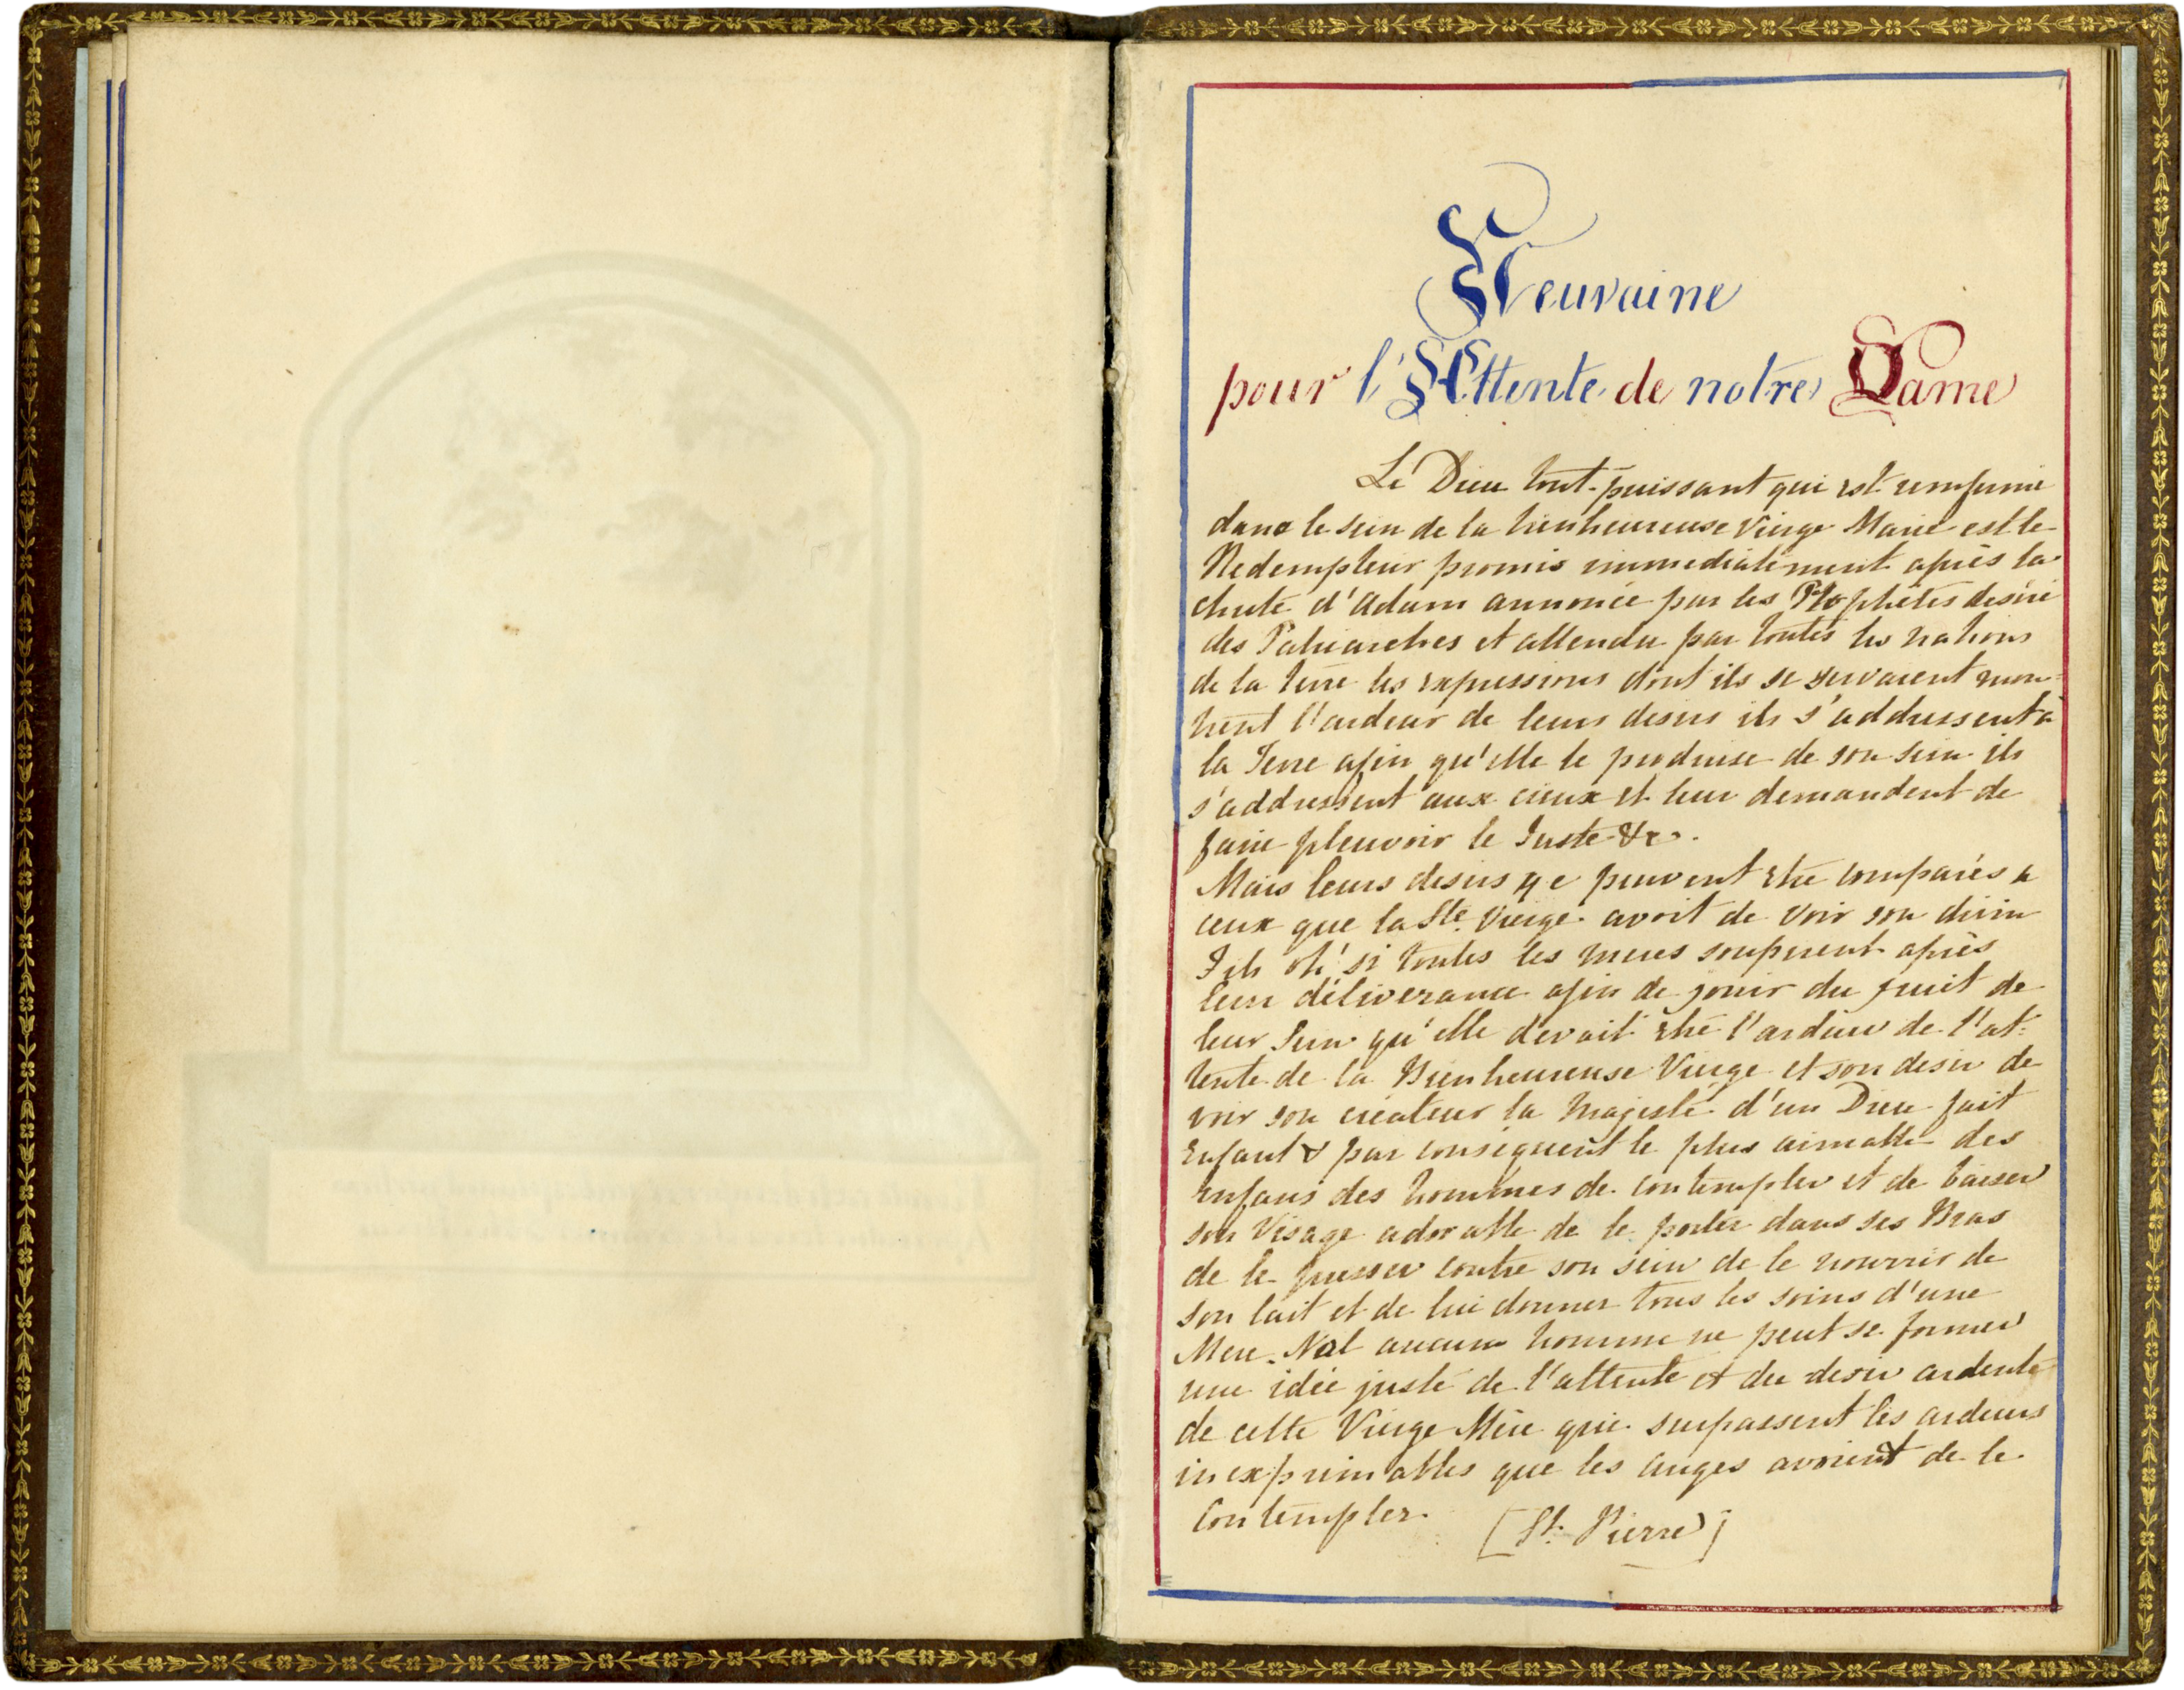 Neuvaine
pour l'Attente de notre Dame
Le Dieu tout-puissant qui est renfermé
dans le sein de la bienheureuse Vierge Marie est le
Redempteur promis immediatement après la
chute d'Adam annoncé par les Prophètes désiré
des Patriarches et attendu par toutes les nations
de la terre les expressions dont ils se servaient mon=
trent l'ardeur de leurs desirs ils s'addressent à
la Terre afin qu'elle le produise de son sein ils
s'addressent aux cieux et leur demandent de
faire pleuvoir le Juste &c.
Mais leurs desirs ne peuvent être comparés à
ceux que la Ste. Vierge avoit de voir son divin
Fils oh! si toutes les meres soupirent après
leur déliverance afin de jouir du fruit de
leur Sein qu'elle devait être l'ardeur de l'at=
tente de la Bienheureuse Vierge et son desir de
voir son créateur la Majesté d'un Dieu fait
Enfant & par conséquent le plus aimable des
enfans des hommes de contempler et de baiser
son Visage adorable de le porter dans ses Bras
de le presser contre son sein de le nourrir de
son lait et de lui donner tous les soins d'une
Mere. Nal aucun homme ne peut se former
une idée juste de l'attente et du desir ardente
de cette Vierge Mère qui surpassent les ardeurs
inexprimables que les anges avoient de le
Contempler. [St. Pierre]